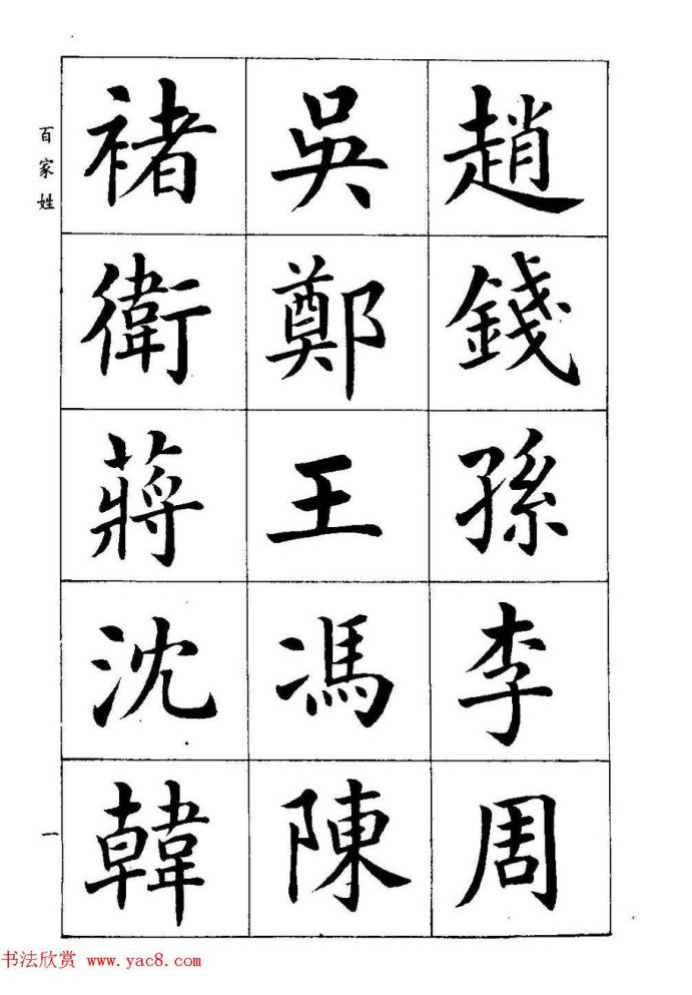 百家姓
趙錢孫李周
吳鄭王馮陳
褚衛蔣沈韓
一
书法欣赏 www.yac8.com